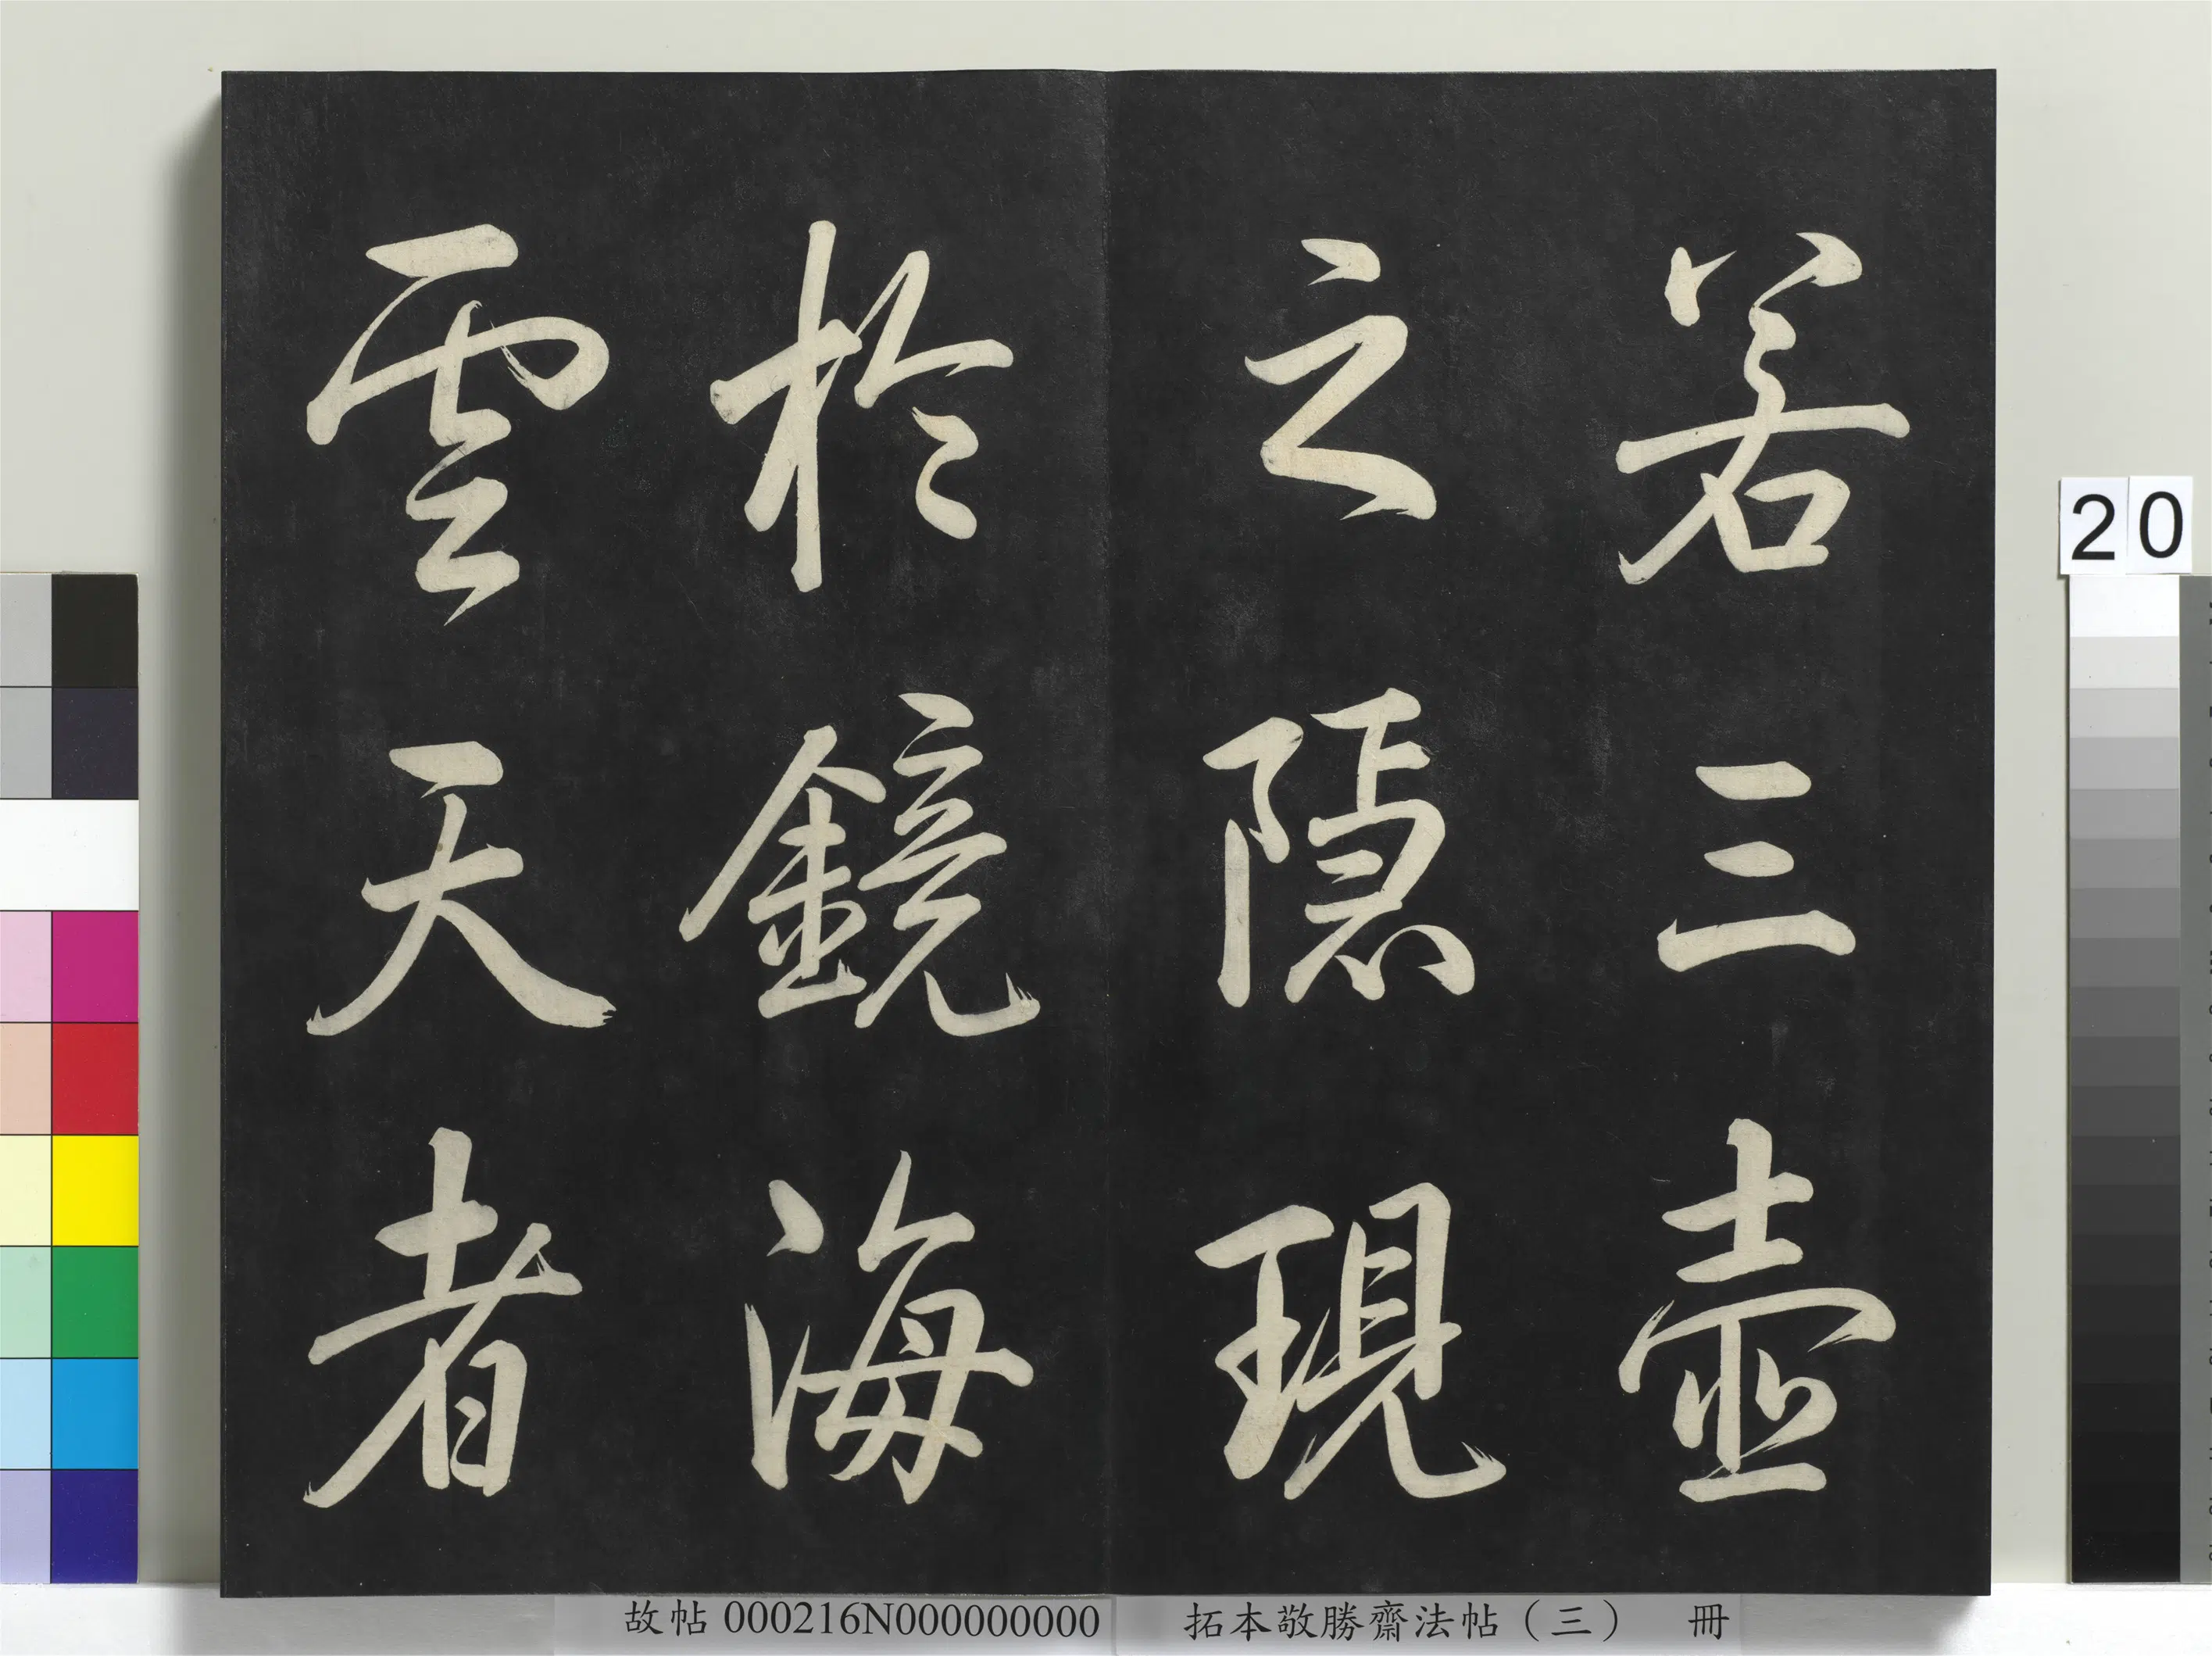 若三壺
之隱現
於鏡海
雲天者
20
故帖000216N000000000 拓本敬勝齋法帖（三） 冊